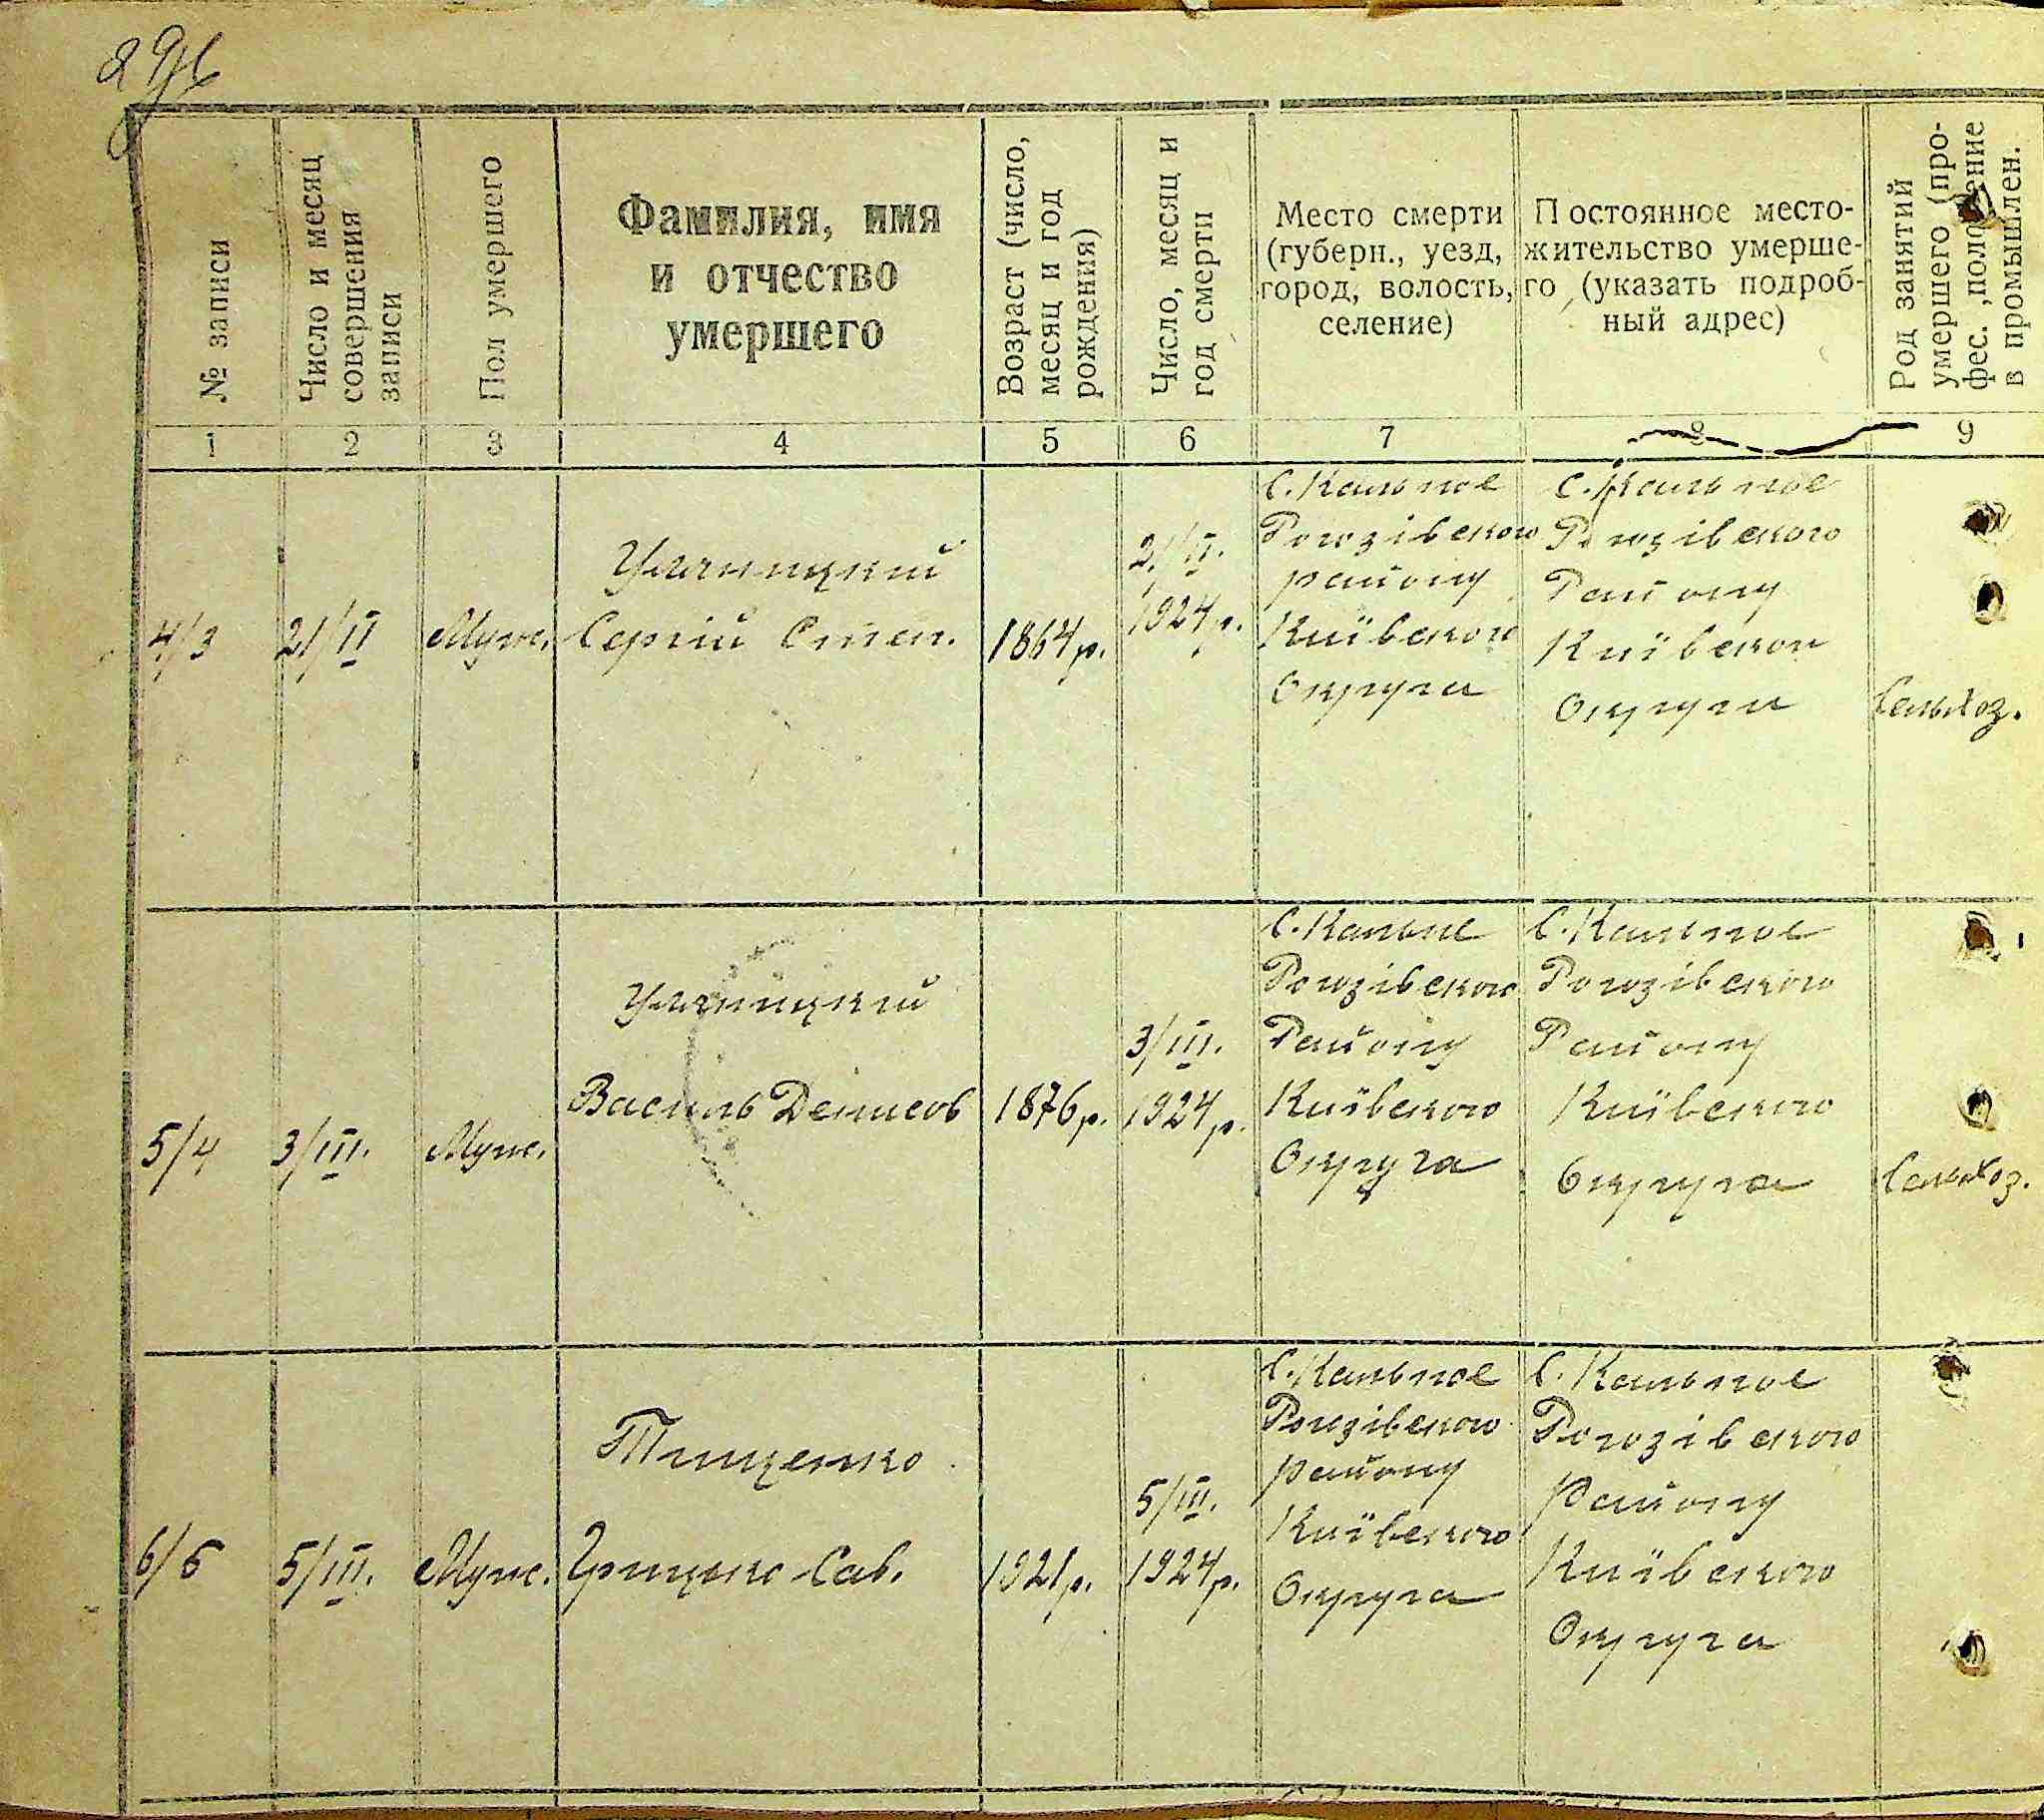 № записи
Число и месяц
совершения
записи
Пол умершего
Фамилия, имя
и отчество
умершего
Возраст (число,
месяц и год
рождения)
Число, месяц и
год смерти
Место смерти
(губерн., уезд,
город, волость,
селение)
Постоянное место-
жительство умерше-
го (указать подроб-
ный адрес)
Род занятий
умершего (про-
фес., положение
в промышлен.
1 2 3 4 5 6 7 8 9
4/3
21/II
Муж.
Сергій Степ.
1864 р.
21/II.
1924 р.
С. Кальное
Рогозівского
району
Київского
Округа
С. Кальное
Рогозівского
Району
Київского
Округи
Сельхоз.
5/4
3/III.
Муж.
Василь Денисов
1876 р.
3/III.
1924 р.
С. Кальне
Рогозівского
Району
Київского
Округа
С. Кальное
Рогозівского
Району
Київского
Округа
Сельхоз.
6/5
5/III.
Муж.
Тищенко
Грицько Сав.
1921 р.
5/III.
1924 р.
С. Кальное
Рогозівского
району
Київского
Округа
С. Кальное
Рогозівского
Району
Київского
Округа